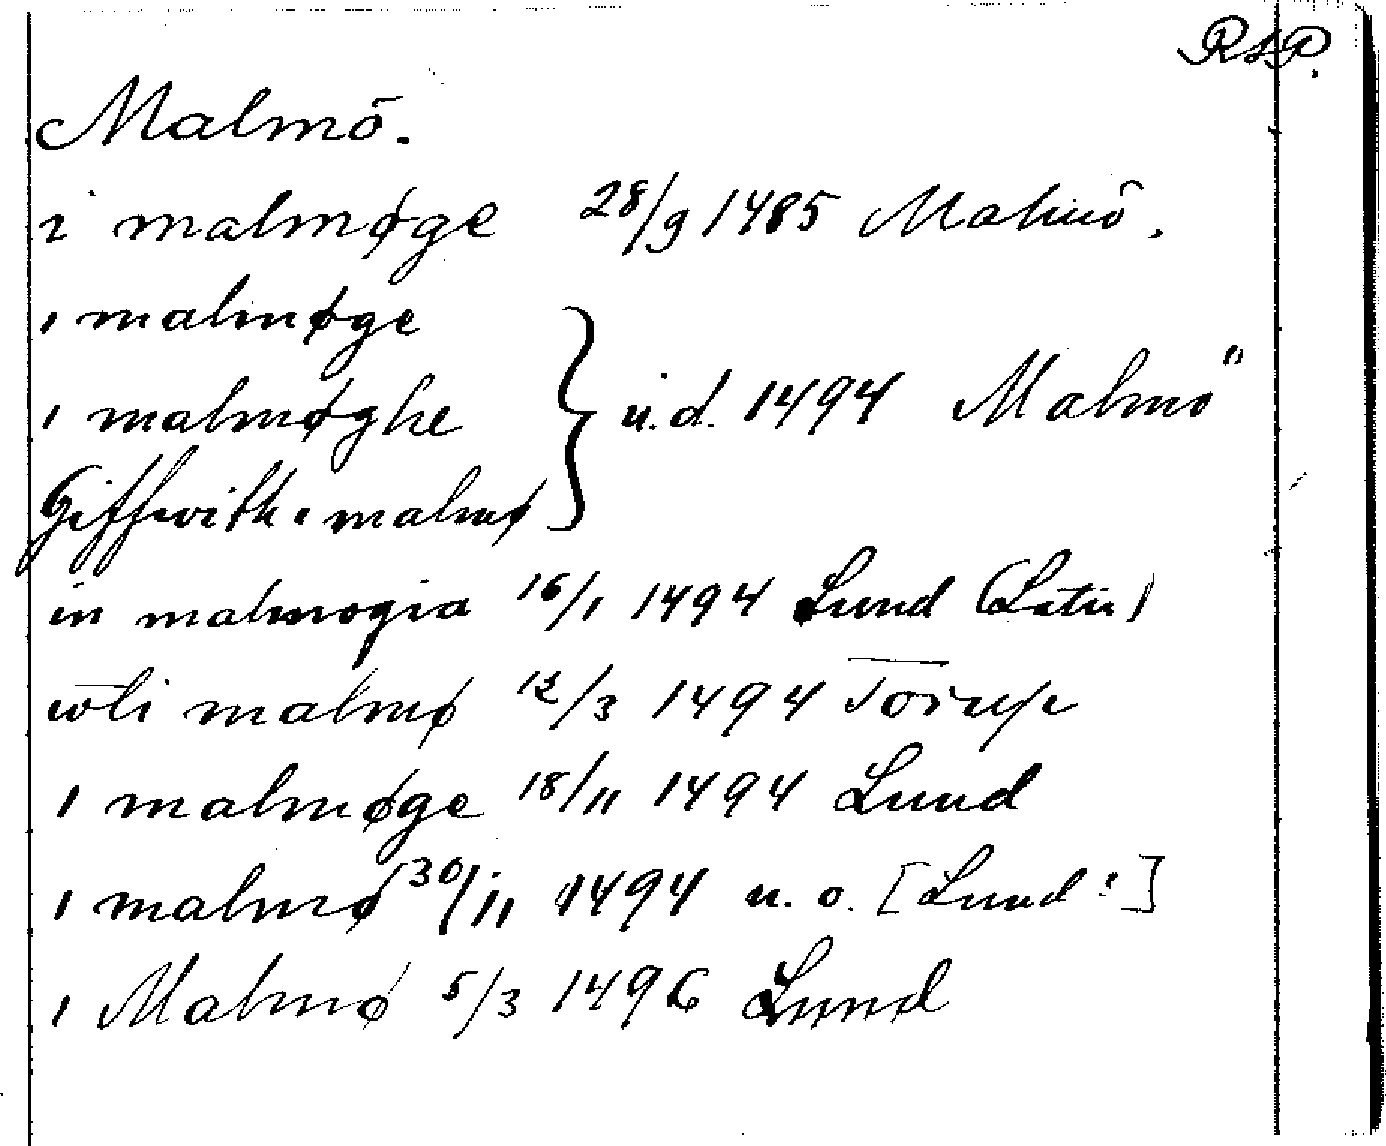 RAP.
Malmö.
i malmøge 28/9 1485 Malmö.
ı malmøge
ı malmøghe } u.d. 1494 Malmö
Giffwith ı malmø
in malmogia 16/1 1494 Lund (Latin)
wti malmø 12/3 1494 Torup
ı malmøge 18/11 1494 Lund
ı malmø 30/11 1494 u. o. [Lund?]
ı Malmø 5/3 1496 Lund